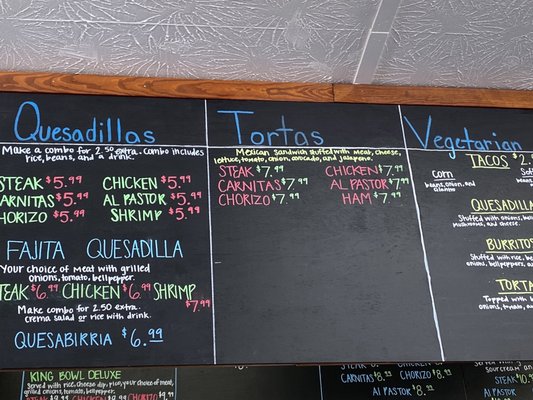 Quesadillas
Make a combo for 2.50 extra. Combo includes
rice, beans, and a drink.
STEAK $5.99 CHICKEN $5.99
CARNITAS $5.99 AL PASTOR $5.99
CHORIZO $5.99 SHRIMP $5.99
FAJITA QUESADILLA
Your choice of meat with grilled
onions, tomato, bellpepper.
STEAK $6.99 CHICKEN $6.99 SHRIMP
$7.99
Make combo for 2.50 extra.
crema salad or rice with drink.
QUESABIRRIA $6.99
KING BOWL DELUXE
Served with rice, cheese dip, pico, your choice of
Tortas
Mexican sandwich stuffed with meat, cheese,
lettuce, tomato, onion, avocado, and jalapeno.
STEAK $7.99 CHICKEN $7.99
CARNITAS $7.99 AL PASTOR $7.99
CHORIZO $7.99 HAM $7.99
STEAK $8.99 CHICKEN
CARNITAS $8.99 CHORIZO $8.99
AL PASTOR $8.99
Vegetarian
TACOS $2.
corn
beans, onion, and
cilantro
QUESADILLA
Stuffed with onions, bellp
mushrooms, and cheese.
BURRITOS
Stuffed with rice, be
onions, bellpeppers, an
TORTA
Topped with b
onions, tomato, a
STEAK $10.